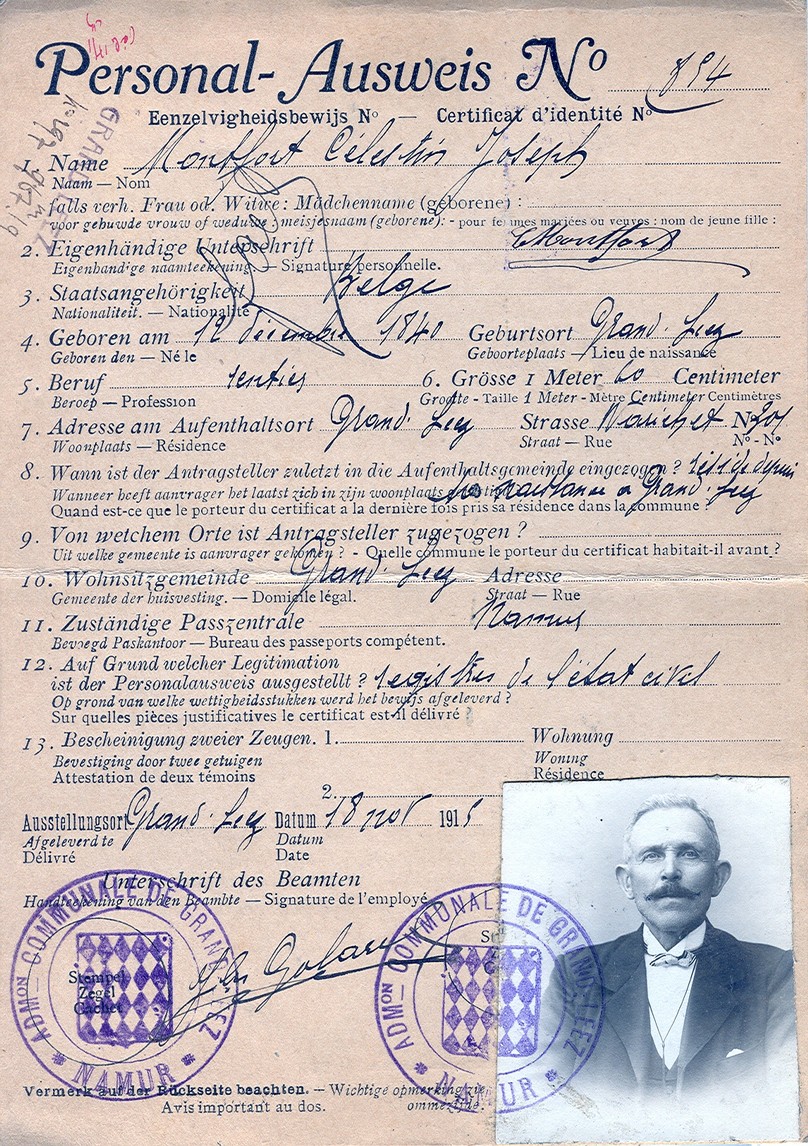 Personal-Ausweis No 894
Eenzelvigheidsbewijs No — Certificat d'identité No
1. Name Montfort Célestin Joseph
Naam — Nom
falls verh. Frau od. Witwe : Mädchenname (geborene) :
voor gehuwde vrouw of weduwe : meisjesnaam (geborene): - pour femmes mariées ou veuves : nom de jeune fille :
2. Eigenhändige Unterschrift CMontfort
Eigenhandige naamteekening. — Signature personnelle.
3. Staatsangehörigkeit Belge
Nationaliteit. — Nationalité
4. Geboren am 12 décembre 1840 Geburtsort Grand-Leez
Geboren den — Né le Geboorteplaats — Lieu de naissance
5. Beruf rentier 6. Grösse 1 Meter 60 Centimeter
Beroep — Profession Grootte - Taille 1 Meter - Mètre Centimeter Centimètres
7. Adresse am Aufenthaltsort Grand-Leez Strasse No 201
Woonplaats — Résidence Straat — Rue No - No
8. Wann ist der Antragsteller zuletzt in die Aufenthaltsgemeinde eingezogen ? réside depuis
Wanneer heeft aanvrager het laatst zich in zijn woonplaats sa naissance à Grand-Leez
Quand est-ce que le porteur du certificat a la dernière fois pris sa résidence dans la commune ?
9. Von welchem Orte ist Antragsteller zugezogen ?
Uit welke gemeente is aanvrager gekomen ? - Quelle commune le porteur du certificat habitait-il avant ?
10. Wohnsitzgemeinde Grand-Leez Adresse
Gemeente der huisvesting. — Domicile légal. Straat — Rue
11. Zuständige Passzentrale Namur
Bevoegd Paskantoor — Bureau des passeports compétent.
12. Auf Grund welcher Legitimation
ist der Personalausweis ausgestellt ? registres de l'état civil
Op grond van welke wettigheidsstukken werd het bewijs afgeleverd ?
Sur quelles pièces justificatives le certificat est-il délivré ?
13. Bescheinigung zweier Zeugen. 1. Wohnung
Bevestiging door twee getuigen Woning
Attestation de deux témoins Résidence
2.
Ausstellungsort Grand-Leez Datum 18 nov 1915
Afgeleverd te Datum
Délivré Date
Unterschrift des Beamten
Handteekening van den Beambte — Signature de l'employé
ADMON COMMUNALE DE GRAND-LEEZ
NAMUR
Stempel
Zegel
Cachet
ADMON COMMUNALE DE GRAND-LEEZ
NAMUR
Vermerk auf der Rückseite beachten. — Wichtige opmerking zie
Avis important au dos. ommezijde.
GRAND-LEEZ